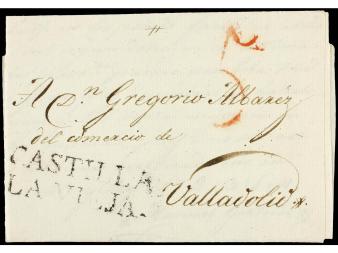 A Dn Gregorio Albarez
del comercio de
CASTILLA
LA VIEJA.
Valladolid